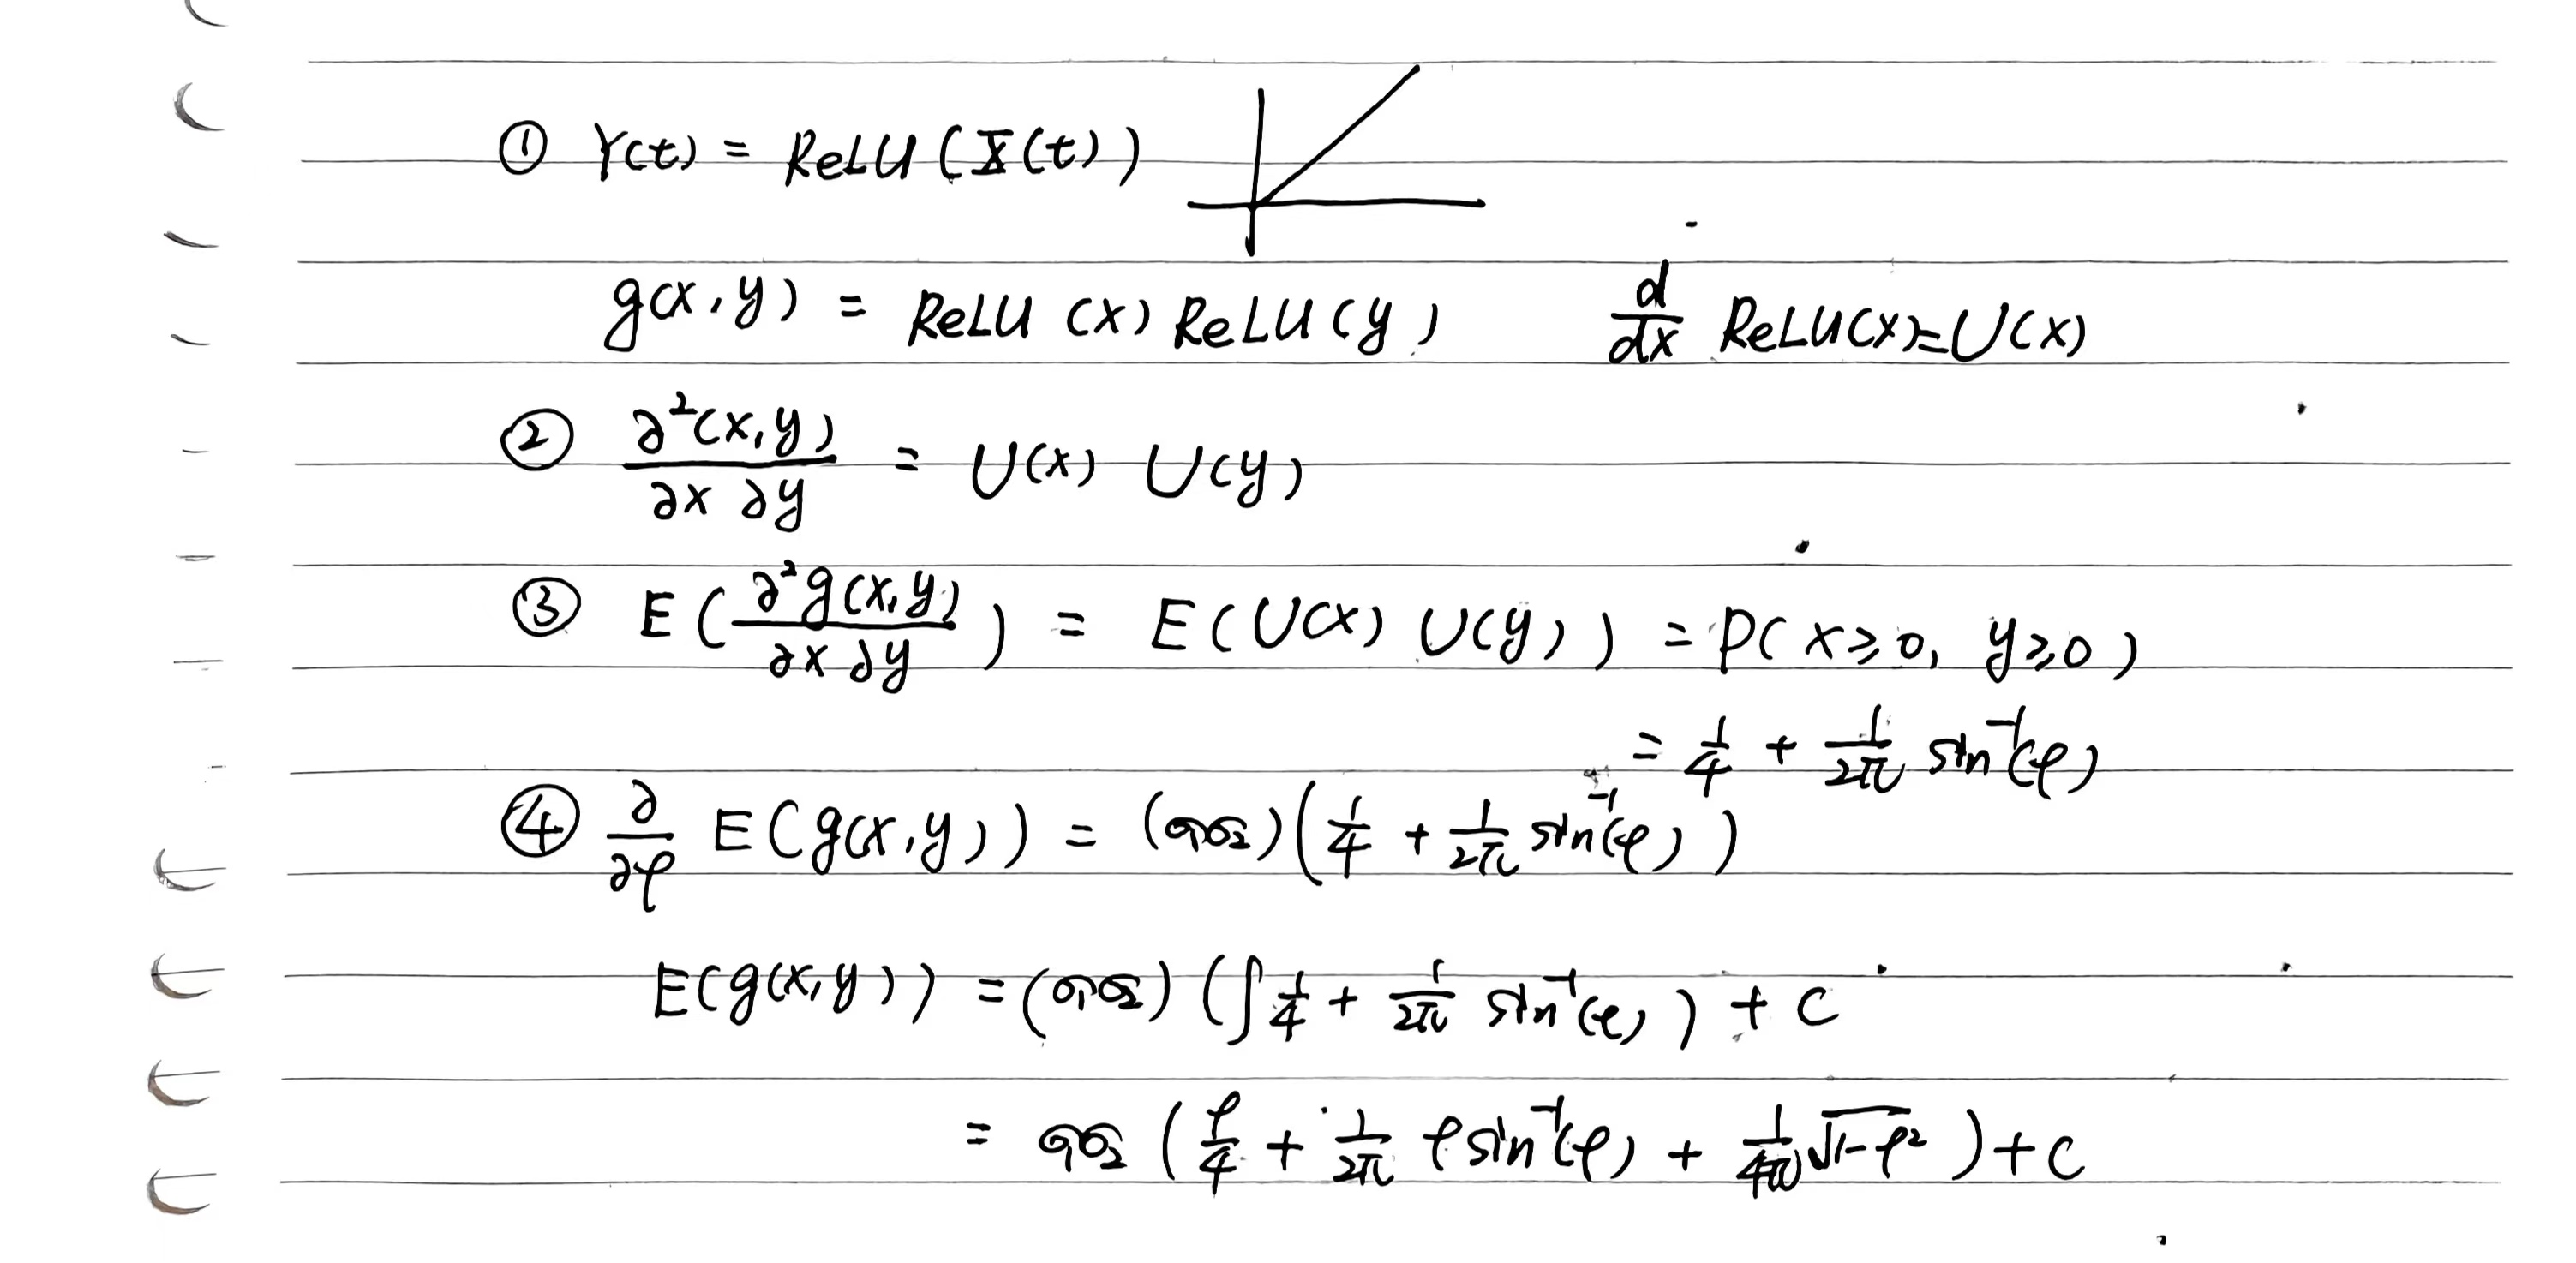 ① Y(t) = ReLU(X(t))
g(x,y) = ReLU(x) ReLU(y) d/dx ReLU(x) = U(x)
② ∂²(x,y)/∂x∂y = U(x) U(y)
③ E(∂²g(x,y)/∂x∂y) = E(U(x) U(y)) = P(x≥0, y≥0)
= 1/4 + 1/2π sin⁻¹(ρ)
④ ∂/∂ρ E(g(x,y)) = (σ₁σ₂)(1/4 + 1/2π sin⁻¹(ρ))
E(g(x,y)) = (σ₁σ₂)(∫1/4 + 1/2π sin⁻¹(ρ)) + C
= σ₁σ₂(ρ/4 + 1/2π ρ sin⁻¹(ρ) + 1/4π √1-ρ²) + C